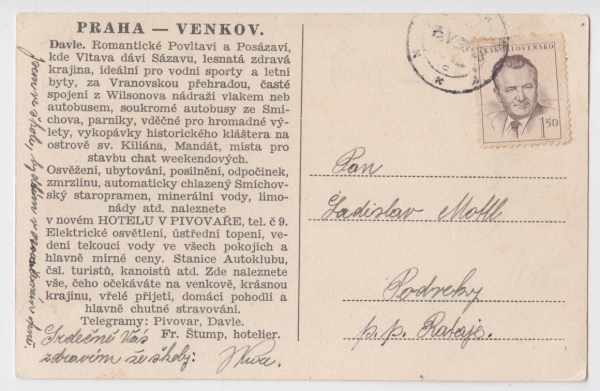 PRAHA — VENKOV.
Davle. Romantické Povltaví a Posázaví,
kde Vltava dáví Sázavu, lesnatá zdravá
krajina, ideální pro vodní sporty a letní
byty, za Vranovskou přehradou, časté
spojení z Wilsonova nádraží vlakem neb
autobusem, soukromé autobusy ze Smí-
chova, parníky, vděčné pro hromadné vý-
lety, vykopávky historického kláštera na
ostrově sv. Kiliána, Mandát, místa pro
stavbu chat weekendových.
Osvěžení, ubytování, posilnění, odpočinek,
zmrzlinu, automaticky chlazený Smíchov-
ský staropramen, minerální vody, limo-
nády atd. naleznete
v novém HOTELU V PIVOVAŘE, tel. č 9.
Elektrické osvětlení, ústřední topení, ve-
dení tekoucí vody ve všech pokojích a
hlavně mírné ceny. Stanice Autoklubu,
čsl. turistů, kanoistů atd. Zde naleznete
vše, čeho očekáváte na venkově, krásnou
krajinu, vřelé přijetí, domácí pohodlí a
hlavně chutné stravování.
Telegramy: Pivovar, Davle.
Fr. Štump, hotelier.
Srdečně Vás
zdravím ze školy:
ČESKOSLOVENSKO
1.50
Pan
Ladislav Mottl
Podveky
p.p. Rataje.